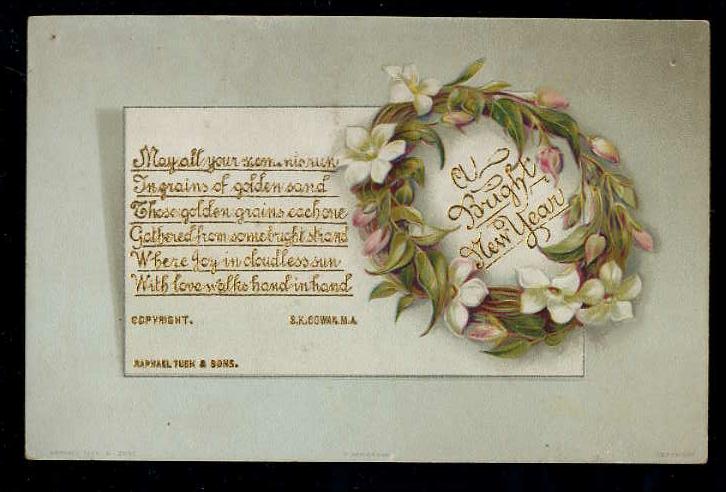 May all your moments run
In grains of golden sand
Those golden grains each one
Gathered from some bright strand
Where Joy in cloudless sun
With love walks hand in hand
COPYRIGHT.
S.K. COWAN. M.A.
RAPHAEL TUCK & SONS.
A
Bright
New Year
RAPHAEL TUCK & SONS
COPYRIGHT